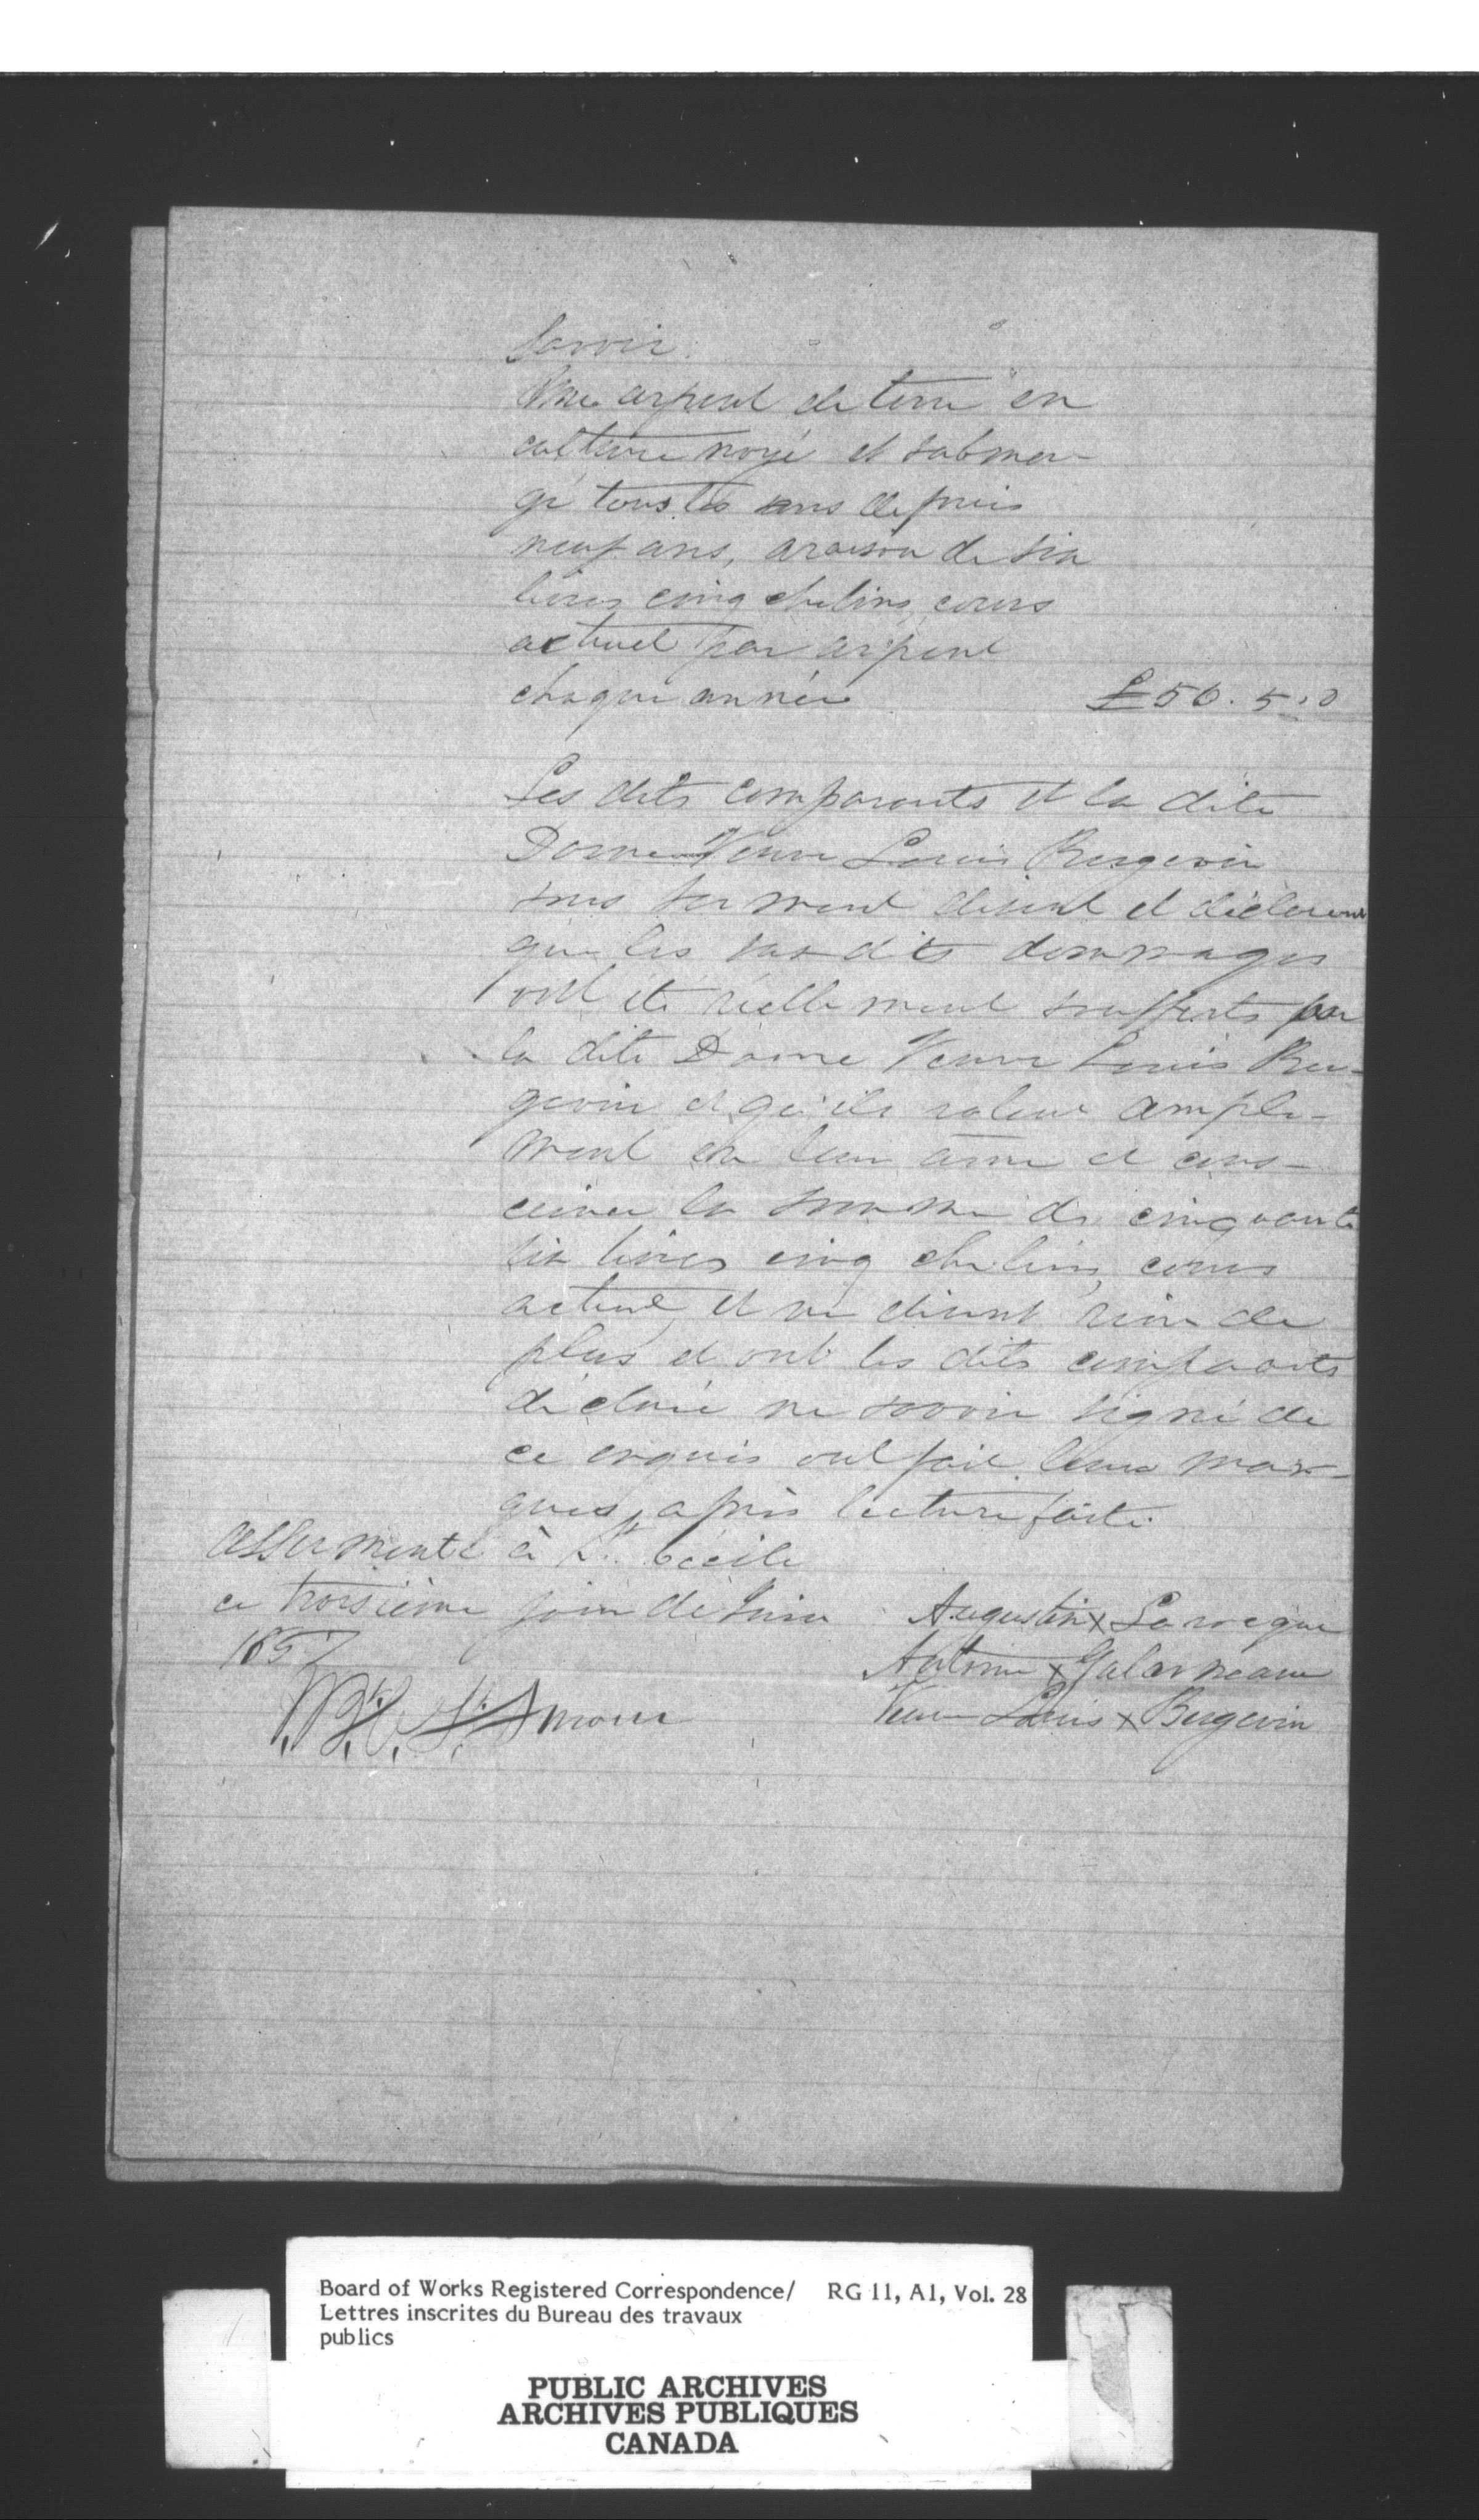 Savoir.
Une arpent de terre en
culture noyé et submer-
gé tous les ans depuis
neuf ans, a raison de six
livres cinq chelins, cours
actuel par arpent
chaque année £56.5.0
Les dits comparants et la dite
Dame Veuve Louis Bergevin
sous serment disent et déclarent
que les susdits dommages
ont été réellement soufferts par
la dite Dame Veuve Louis Ber-
gevin et qu'ils valent ample-
ment en leur âme et cons-
cience la somme de cinquante
six livres cinq chelins, cours
actuel et ne disent rien de
plus et ont les dits comparants
déclaré ne savoir signé de
ce enquis ont fait leurs mar-
ques, après lecture faite.
Assermenté à Ste. Cécile
ce troisième jour de Juin
1857
Augustin x Larocque
Antoine x Galarneau
Veuve Louis x Bergevin
St. Amour
Board of Works Registered Correspondence/ RG 11, A1, Vol. 28
Lettres inscrites du Bureau des travaux
publics
PUBLIC ARCHIVES
ARCHIVES PUBLIQUES
CANADA